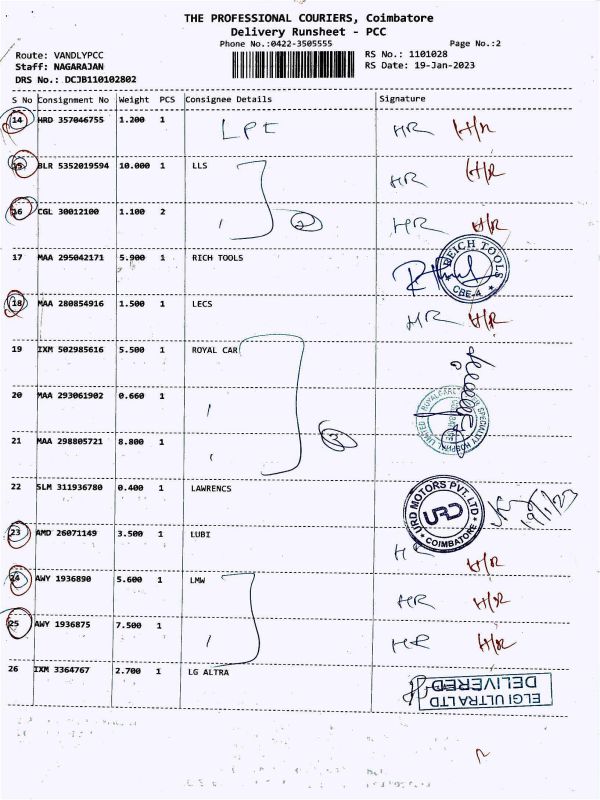 THE PROFESSIONAL COURIERS, Coimbatore
Delivery Runsheet - PCC
Phone No.:0422-3505555 Page No.:2
Route: VANDLYPCC RS No.: 1101028
Staff: NAGARAJAN RS Date: 19-Jan-2023
DRS No.: DCJB110102802
S No Consignment No Weight PCS Consignee Details Signature
14 HRD 357046755 1.200 1 LPE HR H/R
15 BLR 5352019594 10.000 1 LLS HR H/R
16 CGL 30012100 1.100 2 2 HR H/R
17 MAA 295042171 5.900 1 RICH TOOLS
CBE-4
18 MAA 280854916 1.500 1 LECS HR H/R
19 IXM 502985616 5.500 1 ROYAL CAR
20 MAA 293061902 0.660 1
21 MAA 298805721 8.800 1 3
22 SLM 311936780 0.400 1 LAWRENCS URD MOTORS PVT. LTD URD COIMBATORE 19/1/23
23 AMD 26071149 3.500 1 LUBI HR H/R
24 AWY 1936890 5.600 1 LMW HR H/R
25 AWY 1936875 7.500 1 HR H/R
26 IXM 3364767 2.700 1 LG ALTRA
ELGI ULTRA LTD
DELIVERED